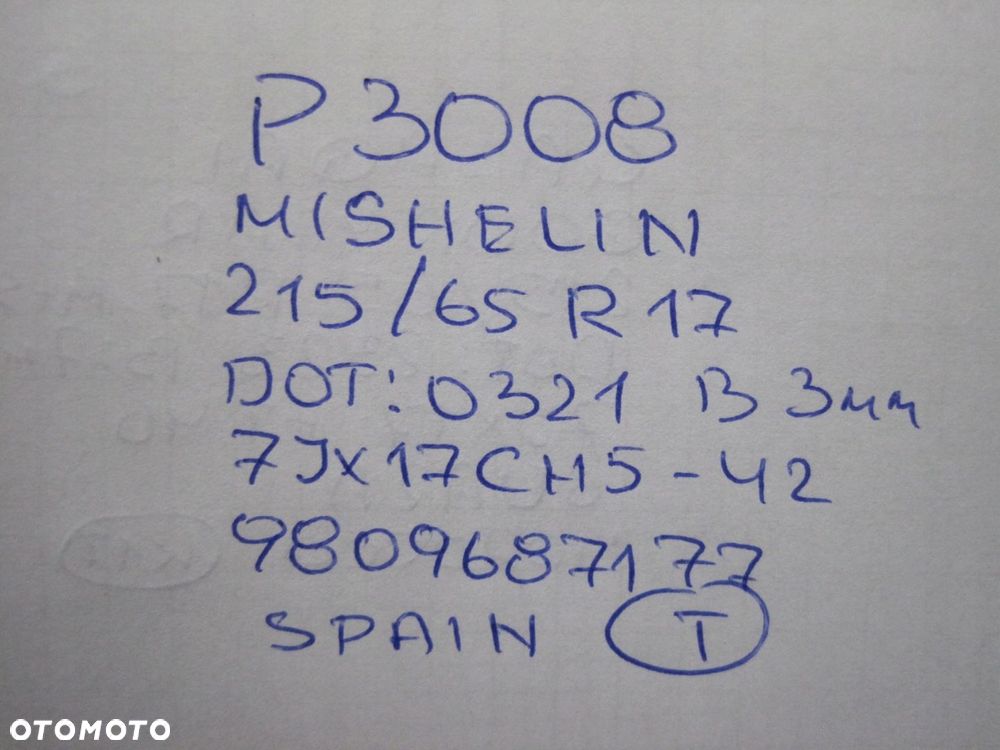 P 3008
MISHELIN
215/65 R 17
DOT: 0321 B 3мм
7Jx17CH5-42
9809687177
SPAIN T
OTOMOTO